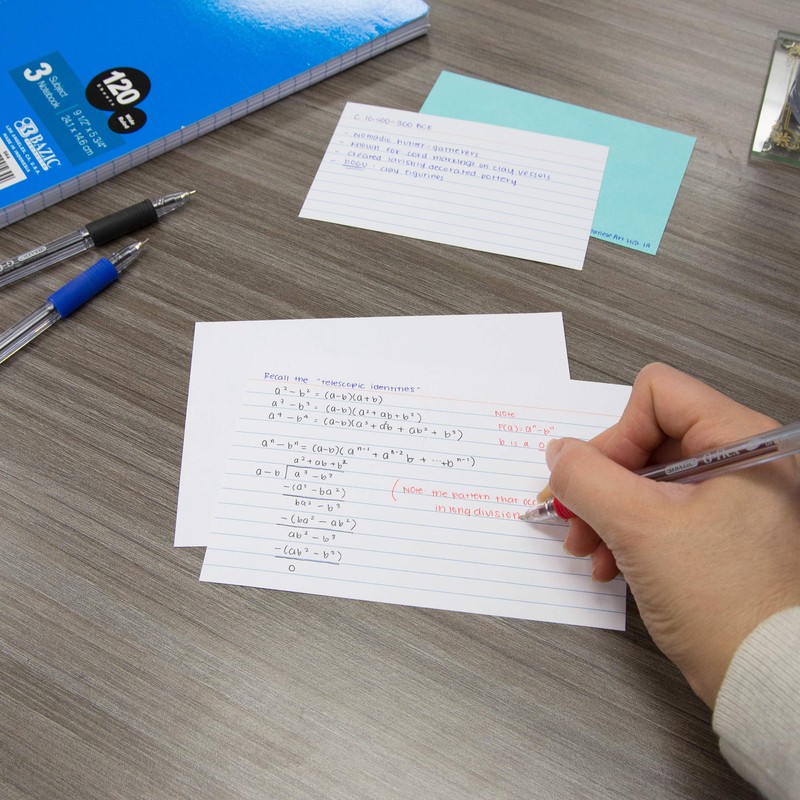 120
SHEETS
Wide
Ruled
3 Subject
Notebook
9 1/2" x 5 3/4"
24.1 x 14.6 cm
BAZIC
LOS ANGELES, CA, U.S.A.
C. 10,500-300 BCE
- Nomadic hunter-gatherers
- Known for cord markings on clay vessels
- created lavishly decorated pottery
- DOGU: clay figurines
Art His 1A
Recall the "telescopic identities"
a² - b² = (a-b)(a+b)
a³ - b³ = (a-b)(a² + ab + b²)
a⁴ - b⁴ = (a-b)(a³ + a²b + ab² + b³)
aⁿ - bⁿ = (a-b)(aⁿ⁻¹ + aⁿ⁻² b + ... + bⁿ⁻¹)
a² + ab + b²
a - b a³ - b³
-(a³ - ba²)
ba² - b³
-(ba² - ab²)
ab² - b³
-(ab² - b³)
0
Note
P(a) = aⁿ - bⁿ
b is a
(Note the pattern that
in long division
BAZIC